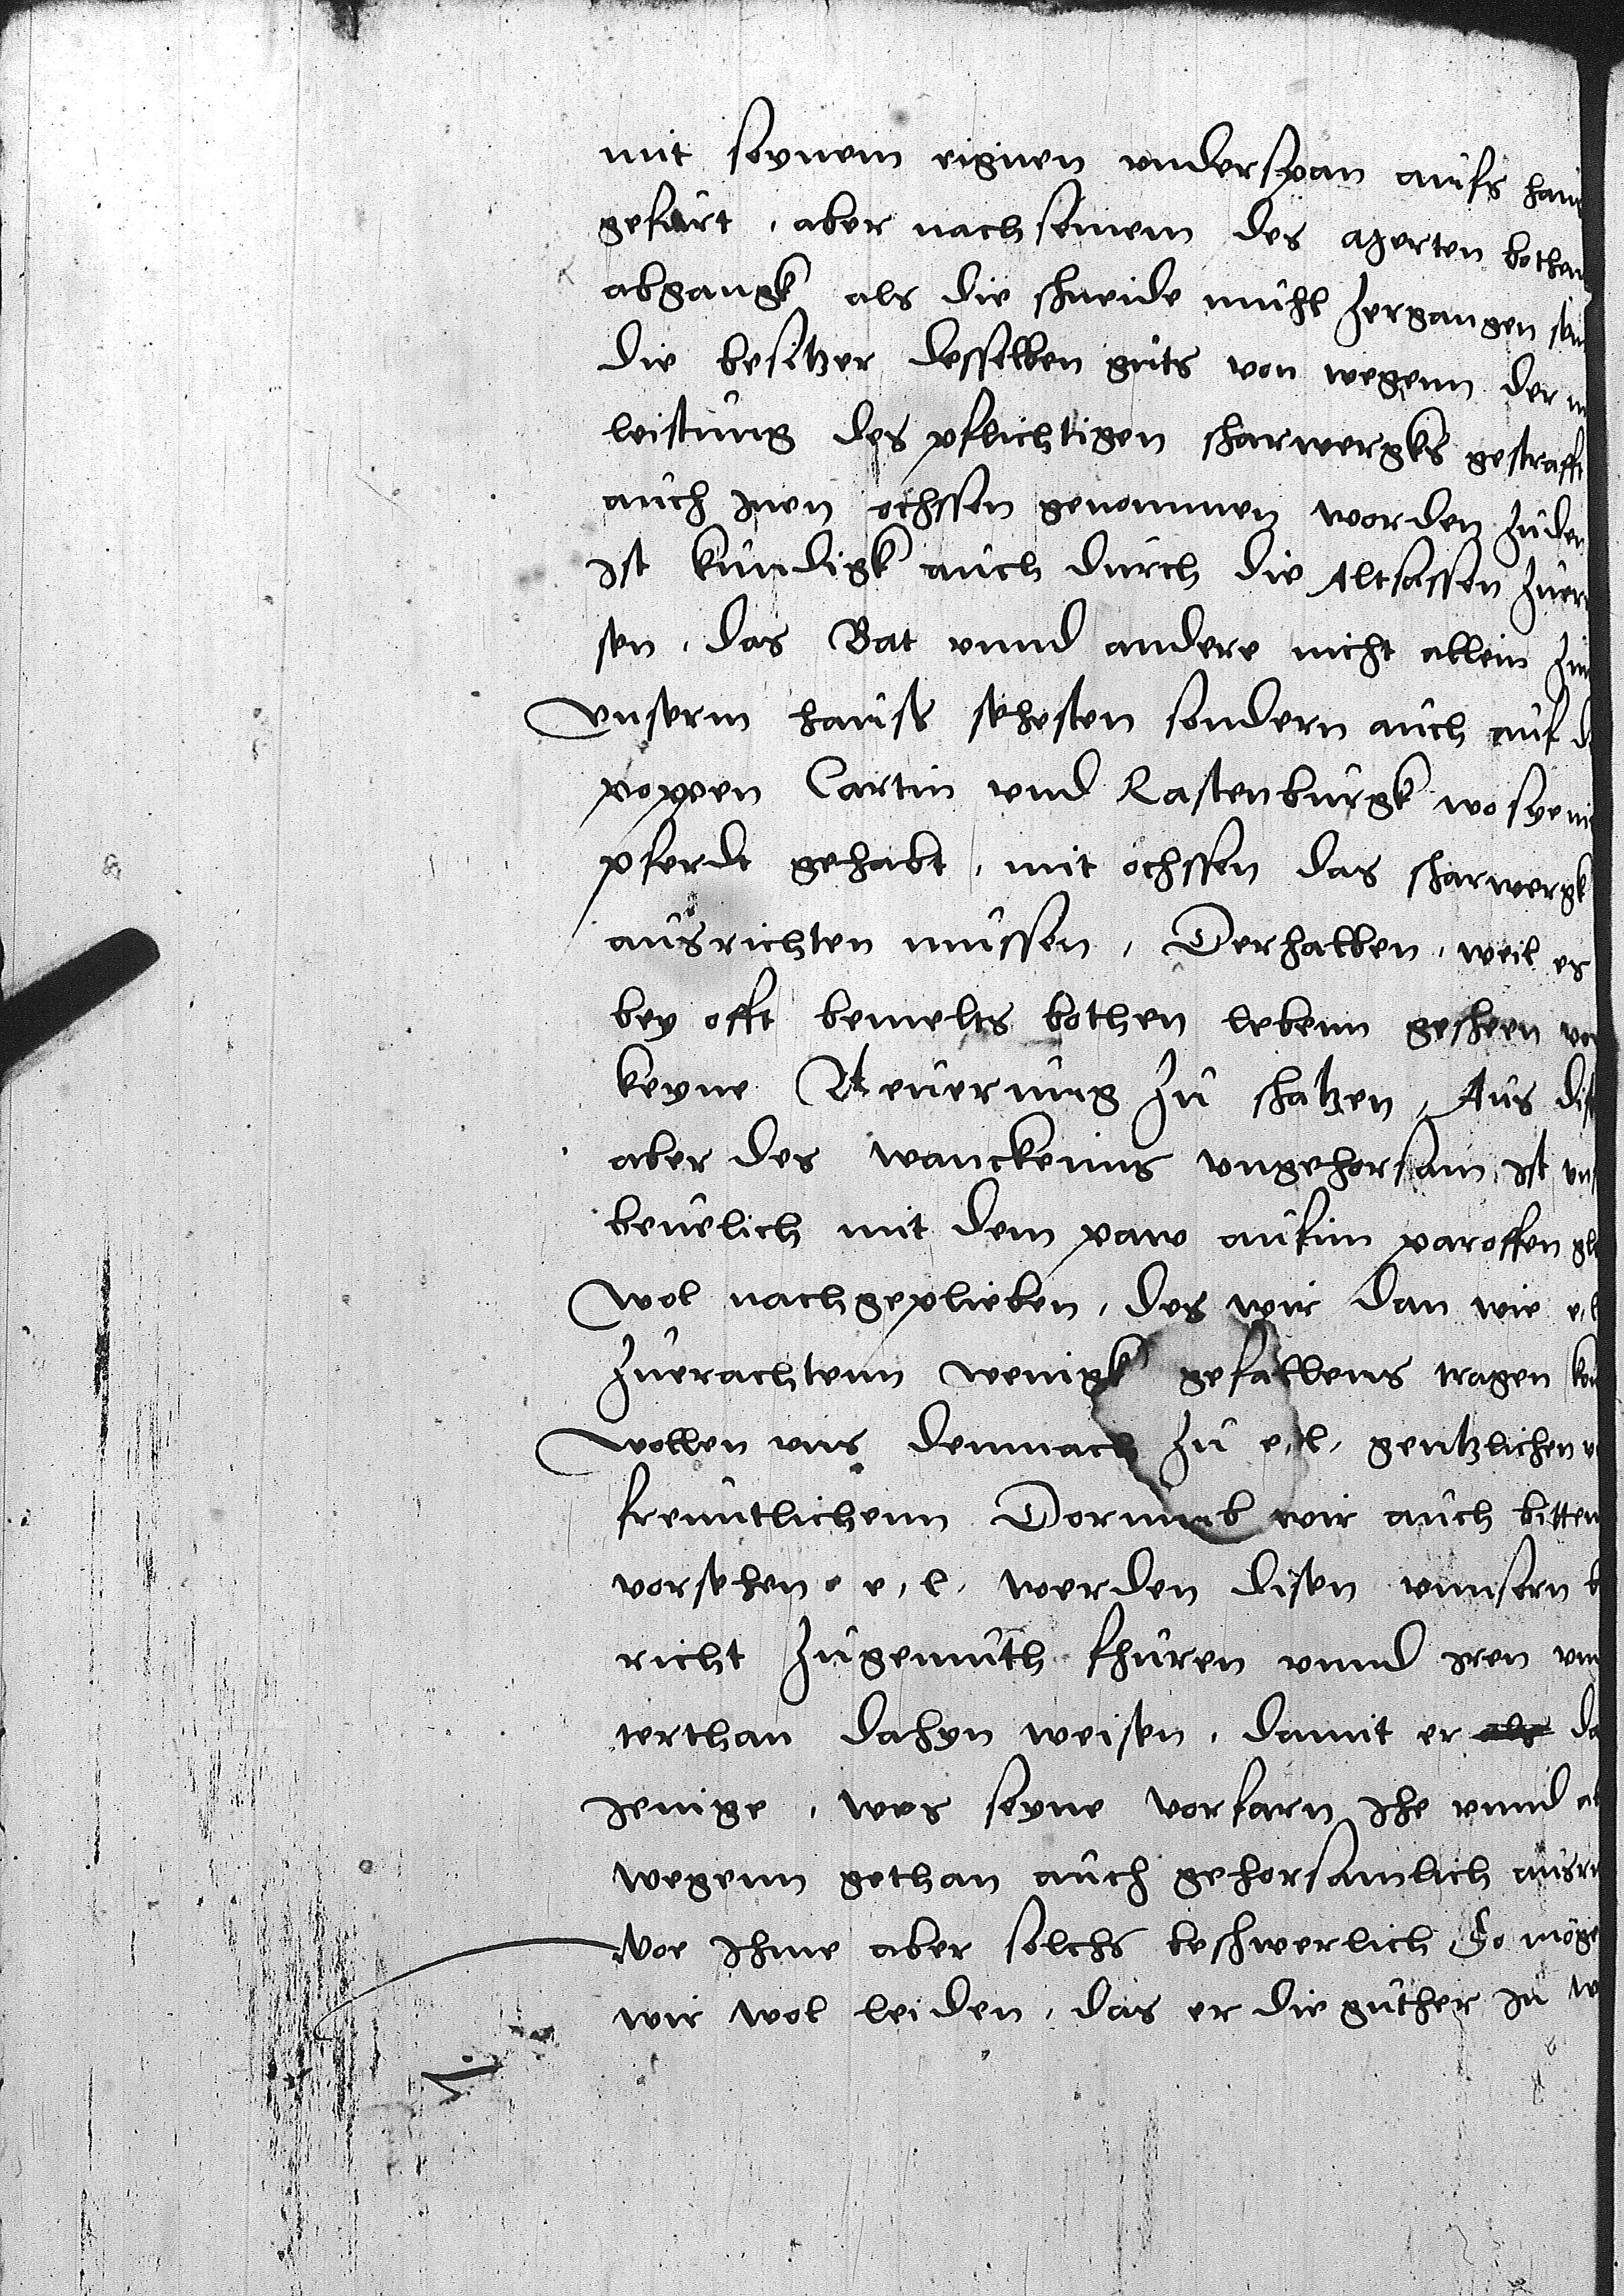 mit seynem eignen underspan aufs haus
gefurt, aber nach seinem des agerten bothen
abgangk als die schneide muhl zergangen sein
die besitzer desselben guts von wegenn der
leistung des pflichtigen scharwergks gestrafft
auch inen ochssen genommen worden zudem
ist kundigk auch durch die Altsassen
sen, das Bat unnd andere nicht allein zu
unserm hauss sehesten sondern auch auf
poppen Cartin und Rastenburgk wo sye
pferdt gehabt, mit ochssen das scharwergk
ausrichten mussen, Derhalben, weil es
bey offt bemelts bothen lebenn gescheen vor
keyne Neuerung zu schatzen, Aus
aber des wanckenins ungehorsam ist
beuelich mit dem paw aufim paroffen
wol nachgeplieben, des wir dan wie e, l
zuerachtenn wenigk gefallens tragen
wollen uns demnach zu e, l, gentzlichen
freuntlichenn Dorumb wir auch bitten
vorsehen e, l, werden disen unnsern
richt zugemuth fhuren unnd iren un
terthan dahyn weisen, damit er
jenige, wes seyne vorfarn ihe unnd
wegenn gethan auch gehorsamlich
wor ihme aber solchs beschwerlich, So möge
wir wol leiden, das er die guther zu